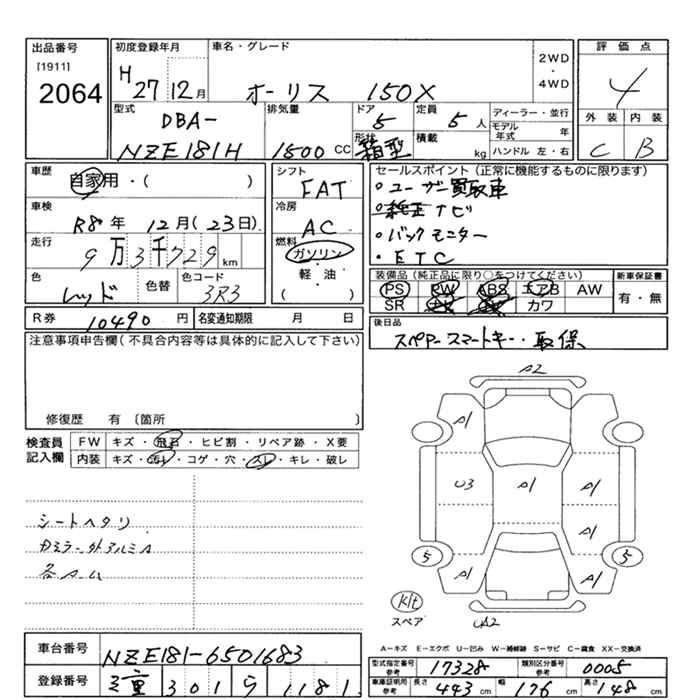 出品番号
[1911]
2064
初度登録年月
H 27 12 月
車名・グレード
オーリス 150X
2WD
・
4WD
評価点
4
外装 内装
C B
型式
DBA-
NZE181H
排気量
1500 CC
ドア
5
形状
箱型
定員
5 人
積載
kg
ディーラー・並行
モデル年式 年
ハンドル 左・右
車歴
自家用・( )
車検
R8 年 12 月 (23日)
走行
9万3千729 km
色
レッド
色替
色コード
3R3
シフト
FAT
冷房
AC
燃料
ガソリン
軽・油
( )
セールスポイント (正常に機能するものに限ります)
・ユーザー買取車
・純正ナビ
・バックモニター
・ETC
装備品(純正品に限り○をつけてください)
PS PW ABS エアB AW
SR カワ
新車保証書
有・無
R券 10490 円
名変通知期限 月 日
後日品
スペアースマートキー・取保
注意事項申告欄(不具合内容等は具体的に記入して下さい)
修復歴 有 〔箇所 〕
検査員
記入欄
FW キズ・飛石・ヒビ割・リペア跡・X要
内装 キズ・汚レ・コゲ・穴・スレ・キレ・破レ
シートヘタリ
各A-ム
A2
A1
U3 A1 A1
A1
5 5
A1 A1
Kit
スペア
A-キズ E-エクボ U-凹み W-補修跡 S-サビ C-腐食 XX-交換済
車台番号 NZE181-6501683
登録番号 三重 301 ラ 1181
型式指定番号
参考
17328
類別区分番号
参考
0005
車庫証明用
参考
長さ 443 cm 幅 176 cm 高さ 148 cm